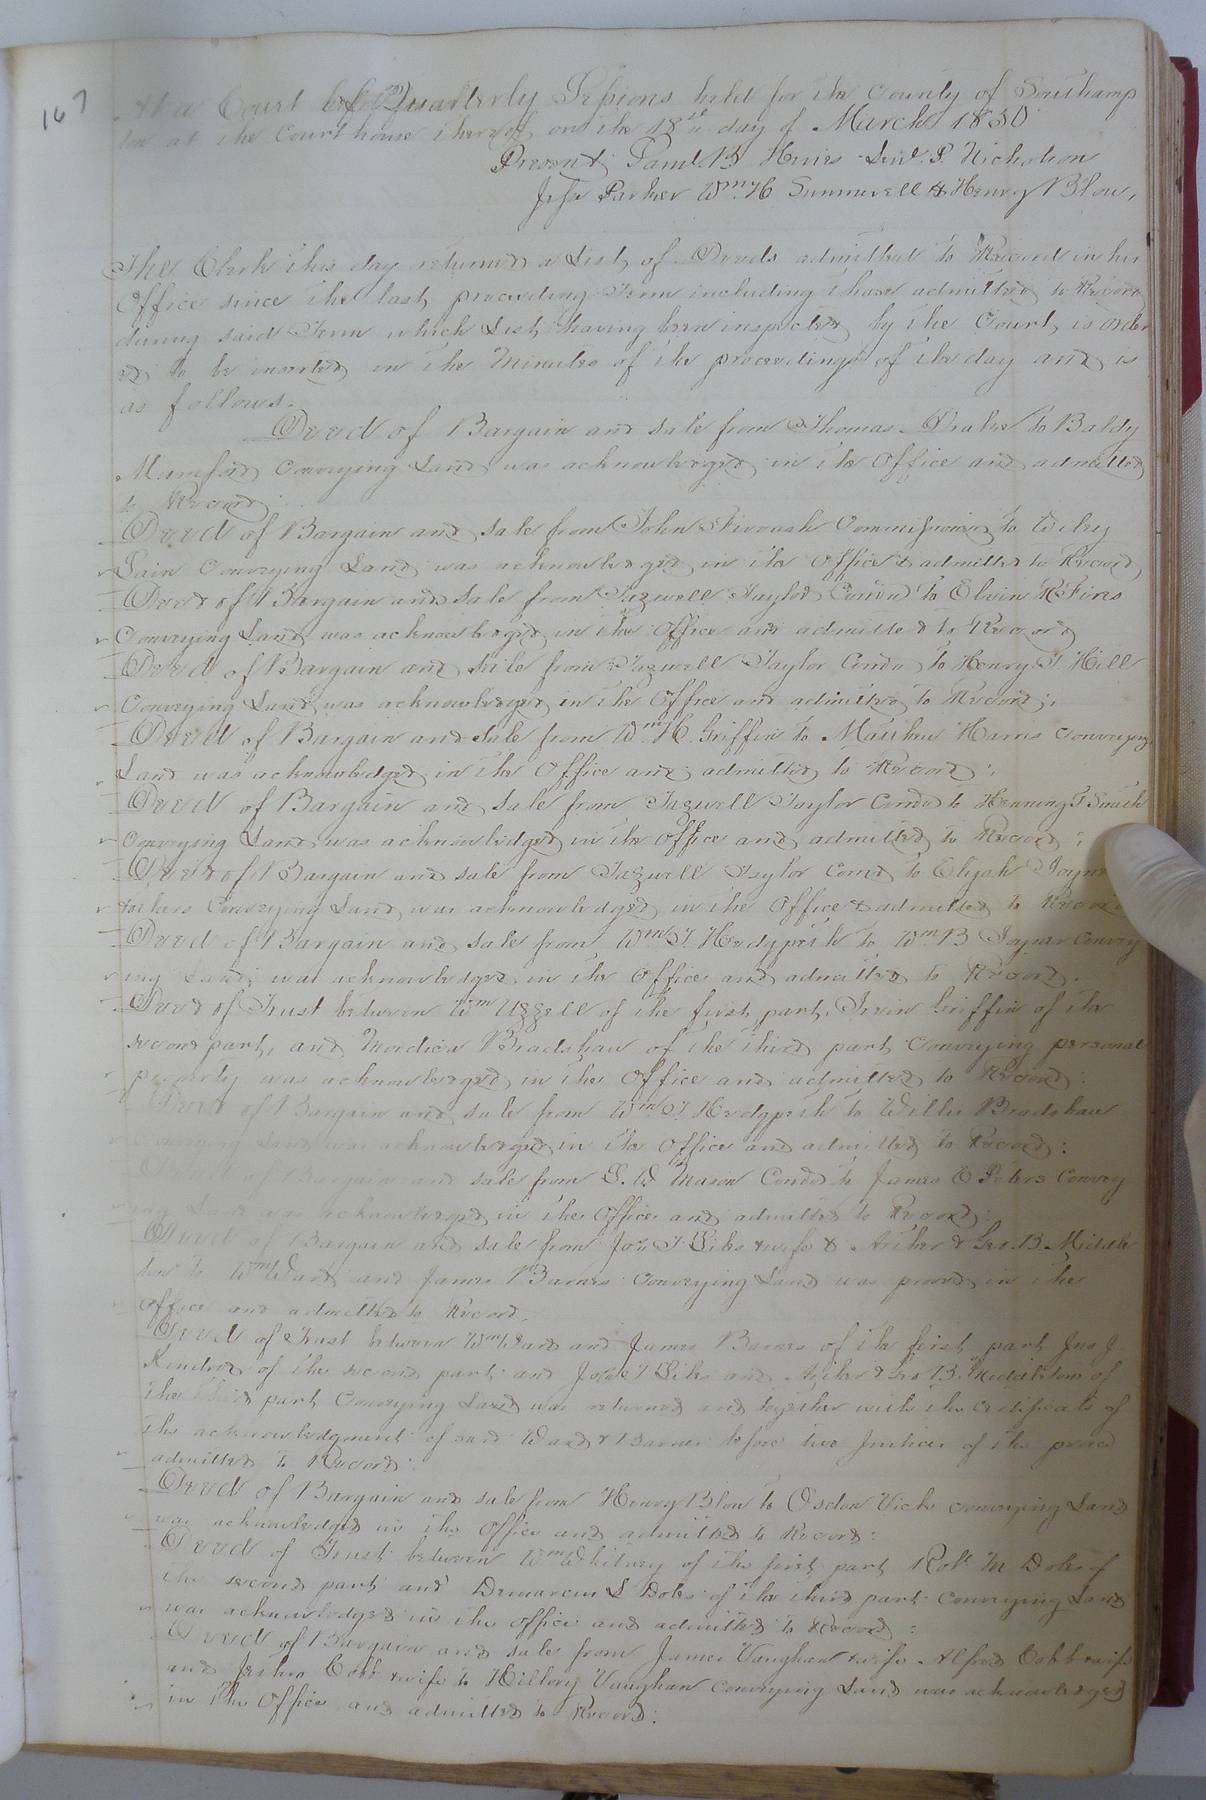 167
At a Court of Quarterly Sessions held for the County of Southamp
ton at the Court house thereof on the 18th day of March 1850
Present Saml. B Hines P. Nicholson
Jesse Parker Wm. H Summerell & Henry Blow,
The Clerk this day returned a List of Deeds admitted to Record in his
Office since the last preceeding Term including those admitted to Record
during said Term which List having been inspected by the Court, is order
ed to be inserted in the Minutes of the proceedings of the day and is
as follows.
Deed of Bargain and sale from Thomas Drake to Baldy
Mumford Conveying Land was acknowledged in the Office and admitted
to Record
Deed of Bargain and sale from John Commissioner to Wiley
Conveying Land was acknowledged in the Office & admitted to Record
Deed of Bargain and sale from Tazwell Taylor to
Conveying Land was acknowledged in the Office and admitted to Record
Deed of Bargain and sale from Tazwell Taylor Comdr to Henry T Hill
Conveying Land was acknowledged in the Office and admitted to Record;
Deed of Bargain and sale from Wm H. Griffin to Matthew Harris Conveying
Land was acknowledged in the Office and admitted to Record;
Deed of Bargain and sale from Tazwell Taylor Comdr to Henning T Smith
Conveying Land was acknowledged in the Office and admitted to Record;
Deed of Bargain and sale from Tazwell Taylor Comd to Elijah
Conveying Land was acknowledged in the Office & admitted to Record
Deed of Bargain and sale from Wm T. Hedgpeth to Wm B Convey
ing Land was acknowledged in the Office and admitted to Record.
Deed of Trust between Wm Uzzell of the first part, Irvin Griffin of the
second part, and Mordica Bradshaw of the third part Conveying personal
property was acknowledged in the Office and admitted to Record:
Deed of Bargain and sale from Wm T. Hedgpeth to Willis Bradshaw
Conveying Land was acknowledged in the Office and admitted to Record:
Deed of Bargain and sale from Mason Comdr to James Peters Convey
ing Land was acknowledged in the Office and admitted to Record:
Deed of Bargain and sale from T Liles & wife & & Geo. B Middle
ton to Wm Ward and James Barnes Conveying Land was proved in the
Office and admitted to Record.
Deed of Trust between Wm Ward and James Barnes of the first part Jno J
Kindred of the second part and T Liles and & Geo B. Middleton of
the third part Conveying Land was returned and together with the Certificate of
the acknowledgment of said Ward & Barnes before two Justices of the peace
admitted to Record:
Deed of Bargain and sale from Henry Blow to Vick conveying Land
was acknowledged in the Office and admitted to Record:
Deed of Trust between Wm Whitney of the first part Robt M Doles of
the second part and Demarcus L Doles of the third part conveying Land
was acknowledged in the office and admitted to Record:
Deed of Bargain and sale from James Vaughan & wife Alfred Cobb & wife
and Cobb & wife to Hillory Vaughan Conveying Land was acknowledged
in the Office and admitted to Record: